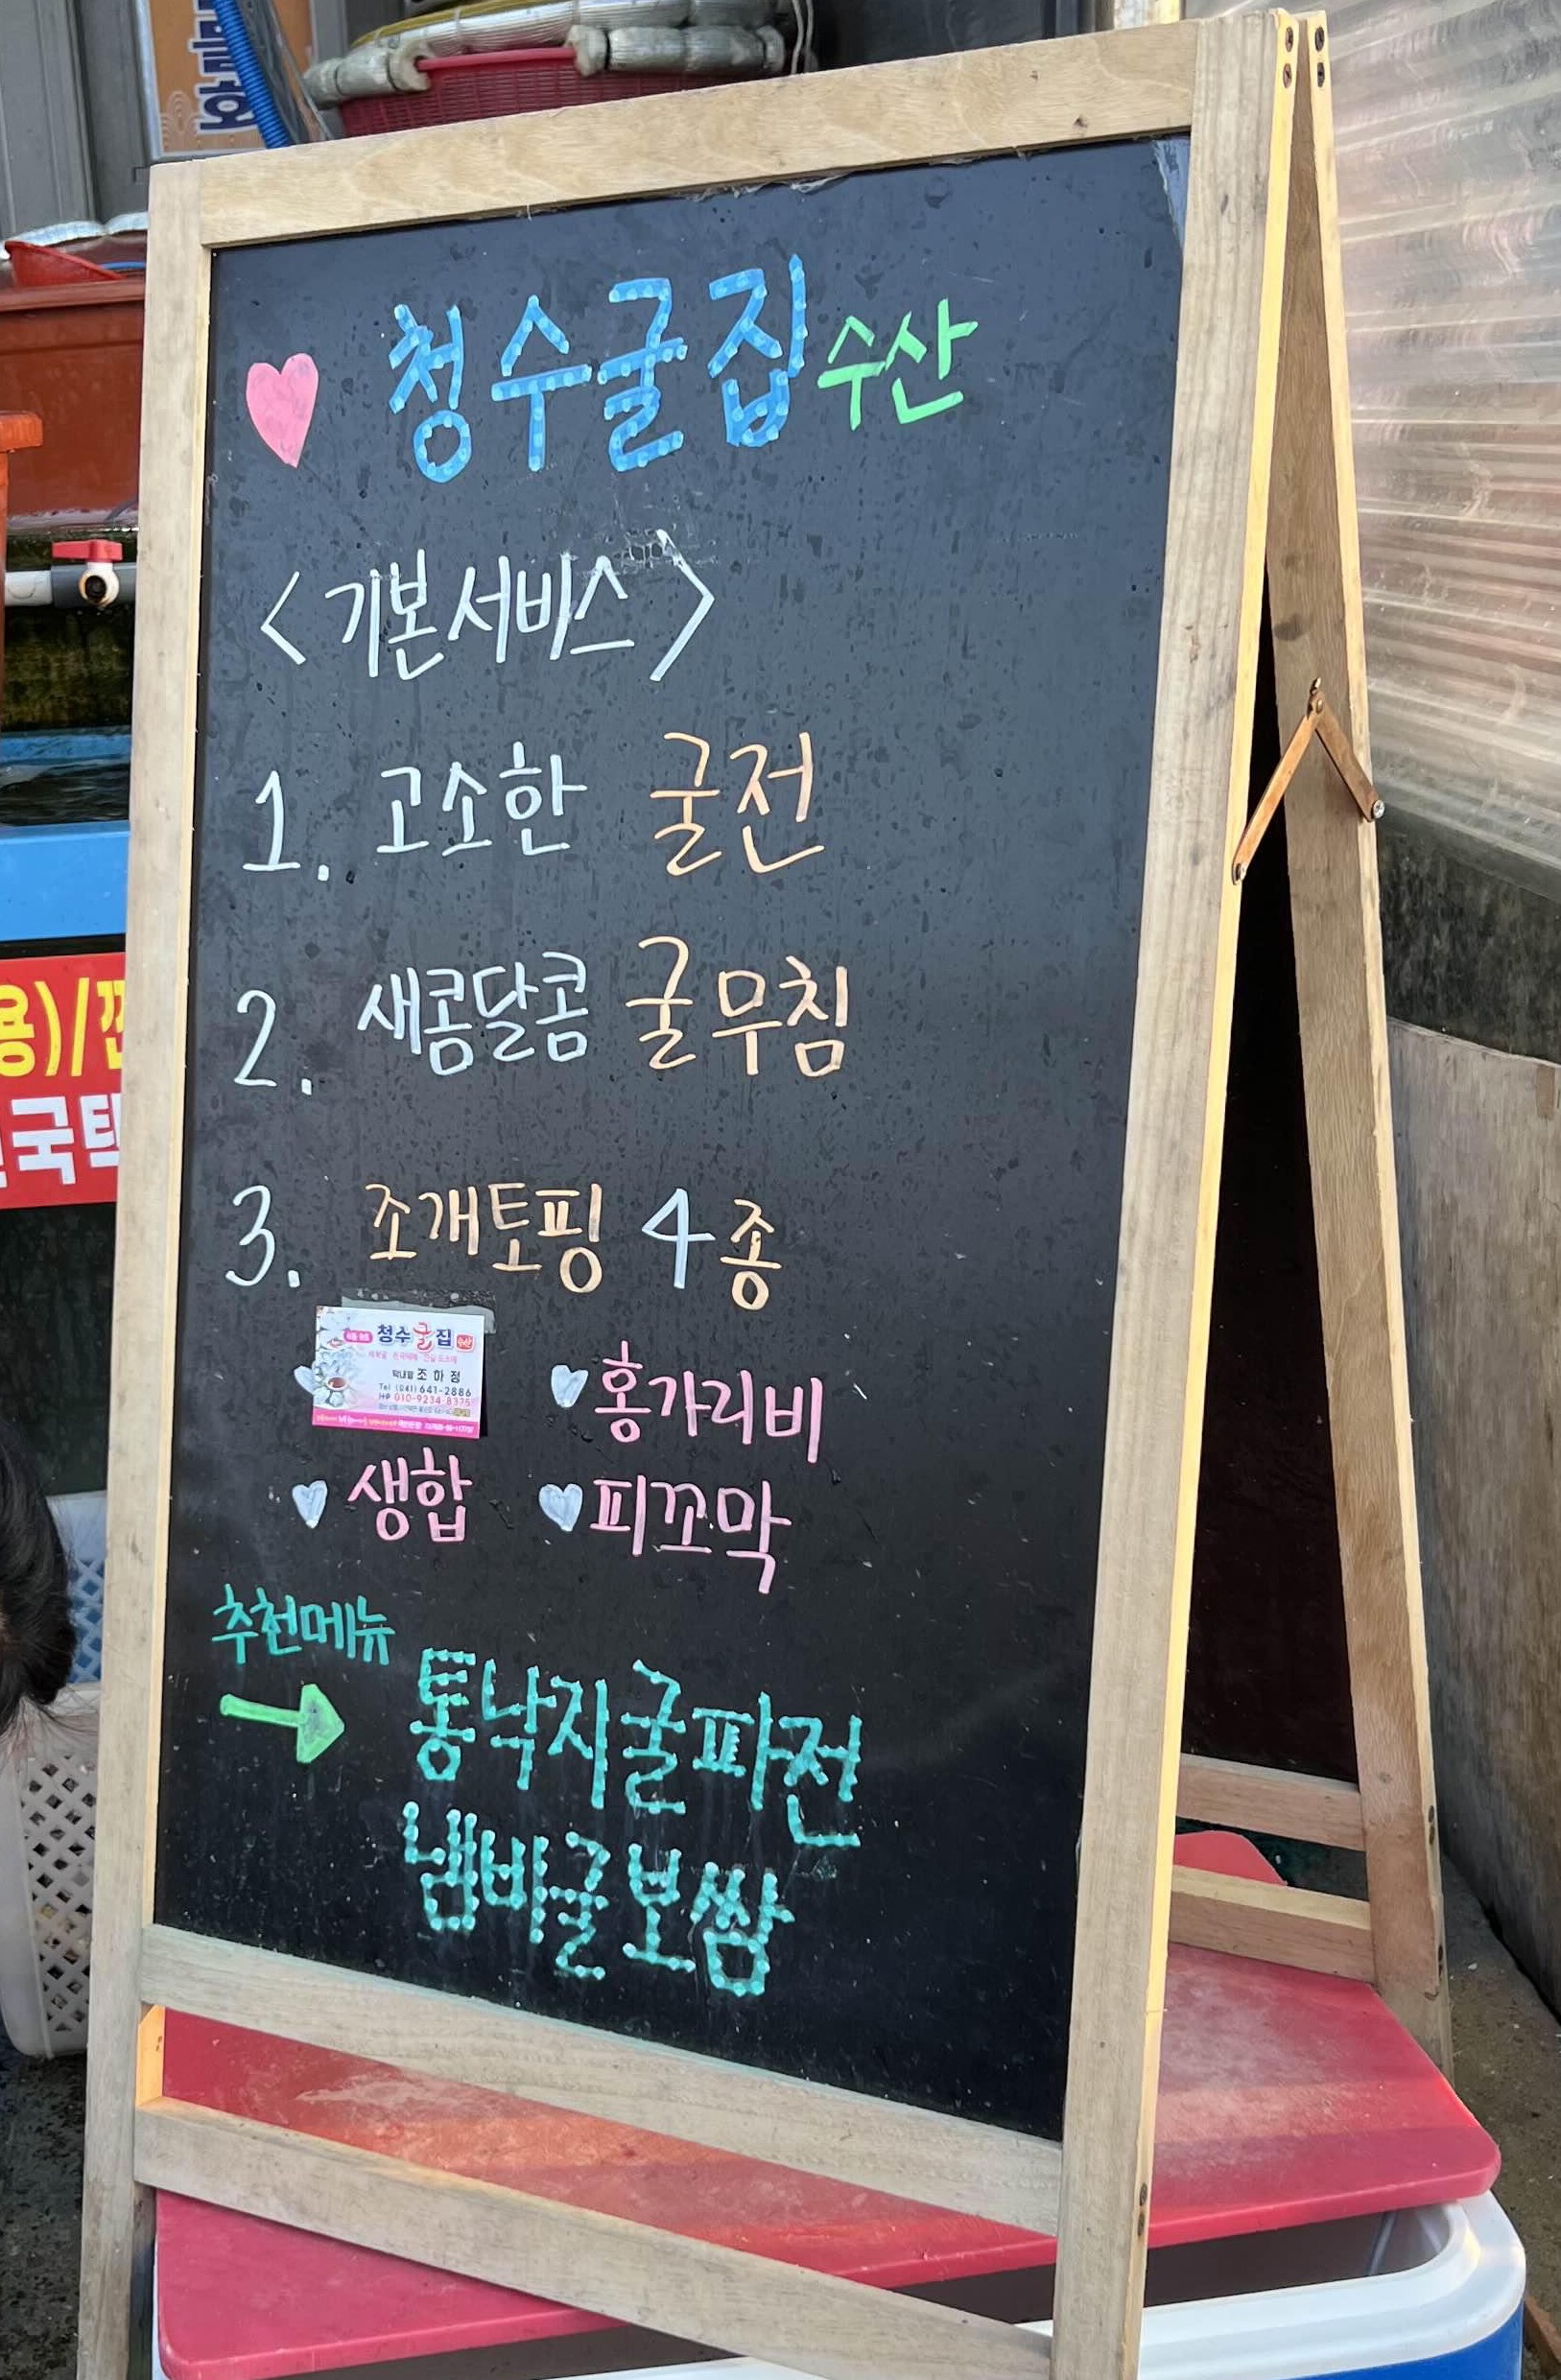 청수굴집수산
<기본서비스>
1. 고소한 굴전
2. 새콤달콤 굴무침
3. 조개토핑 4종
청수굴집
막내딸 조하정
Tel (041) 641-2886
HP 010-9234-8375
홍가리비
생합
피꼬막
추천메뉴
→ 통낙지굴파전
냄비굴보쌈
용)/
국택